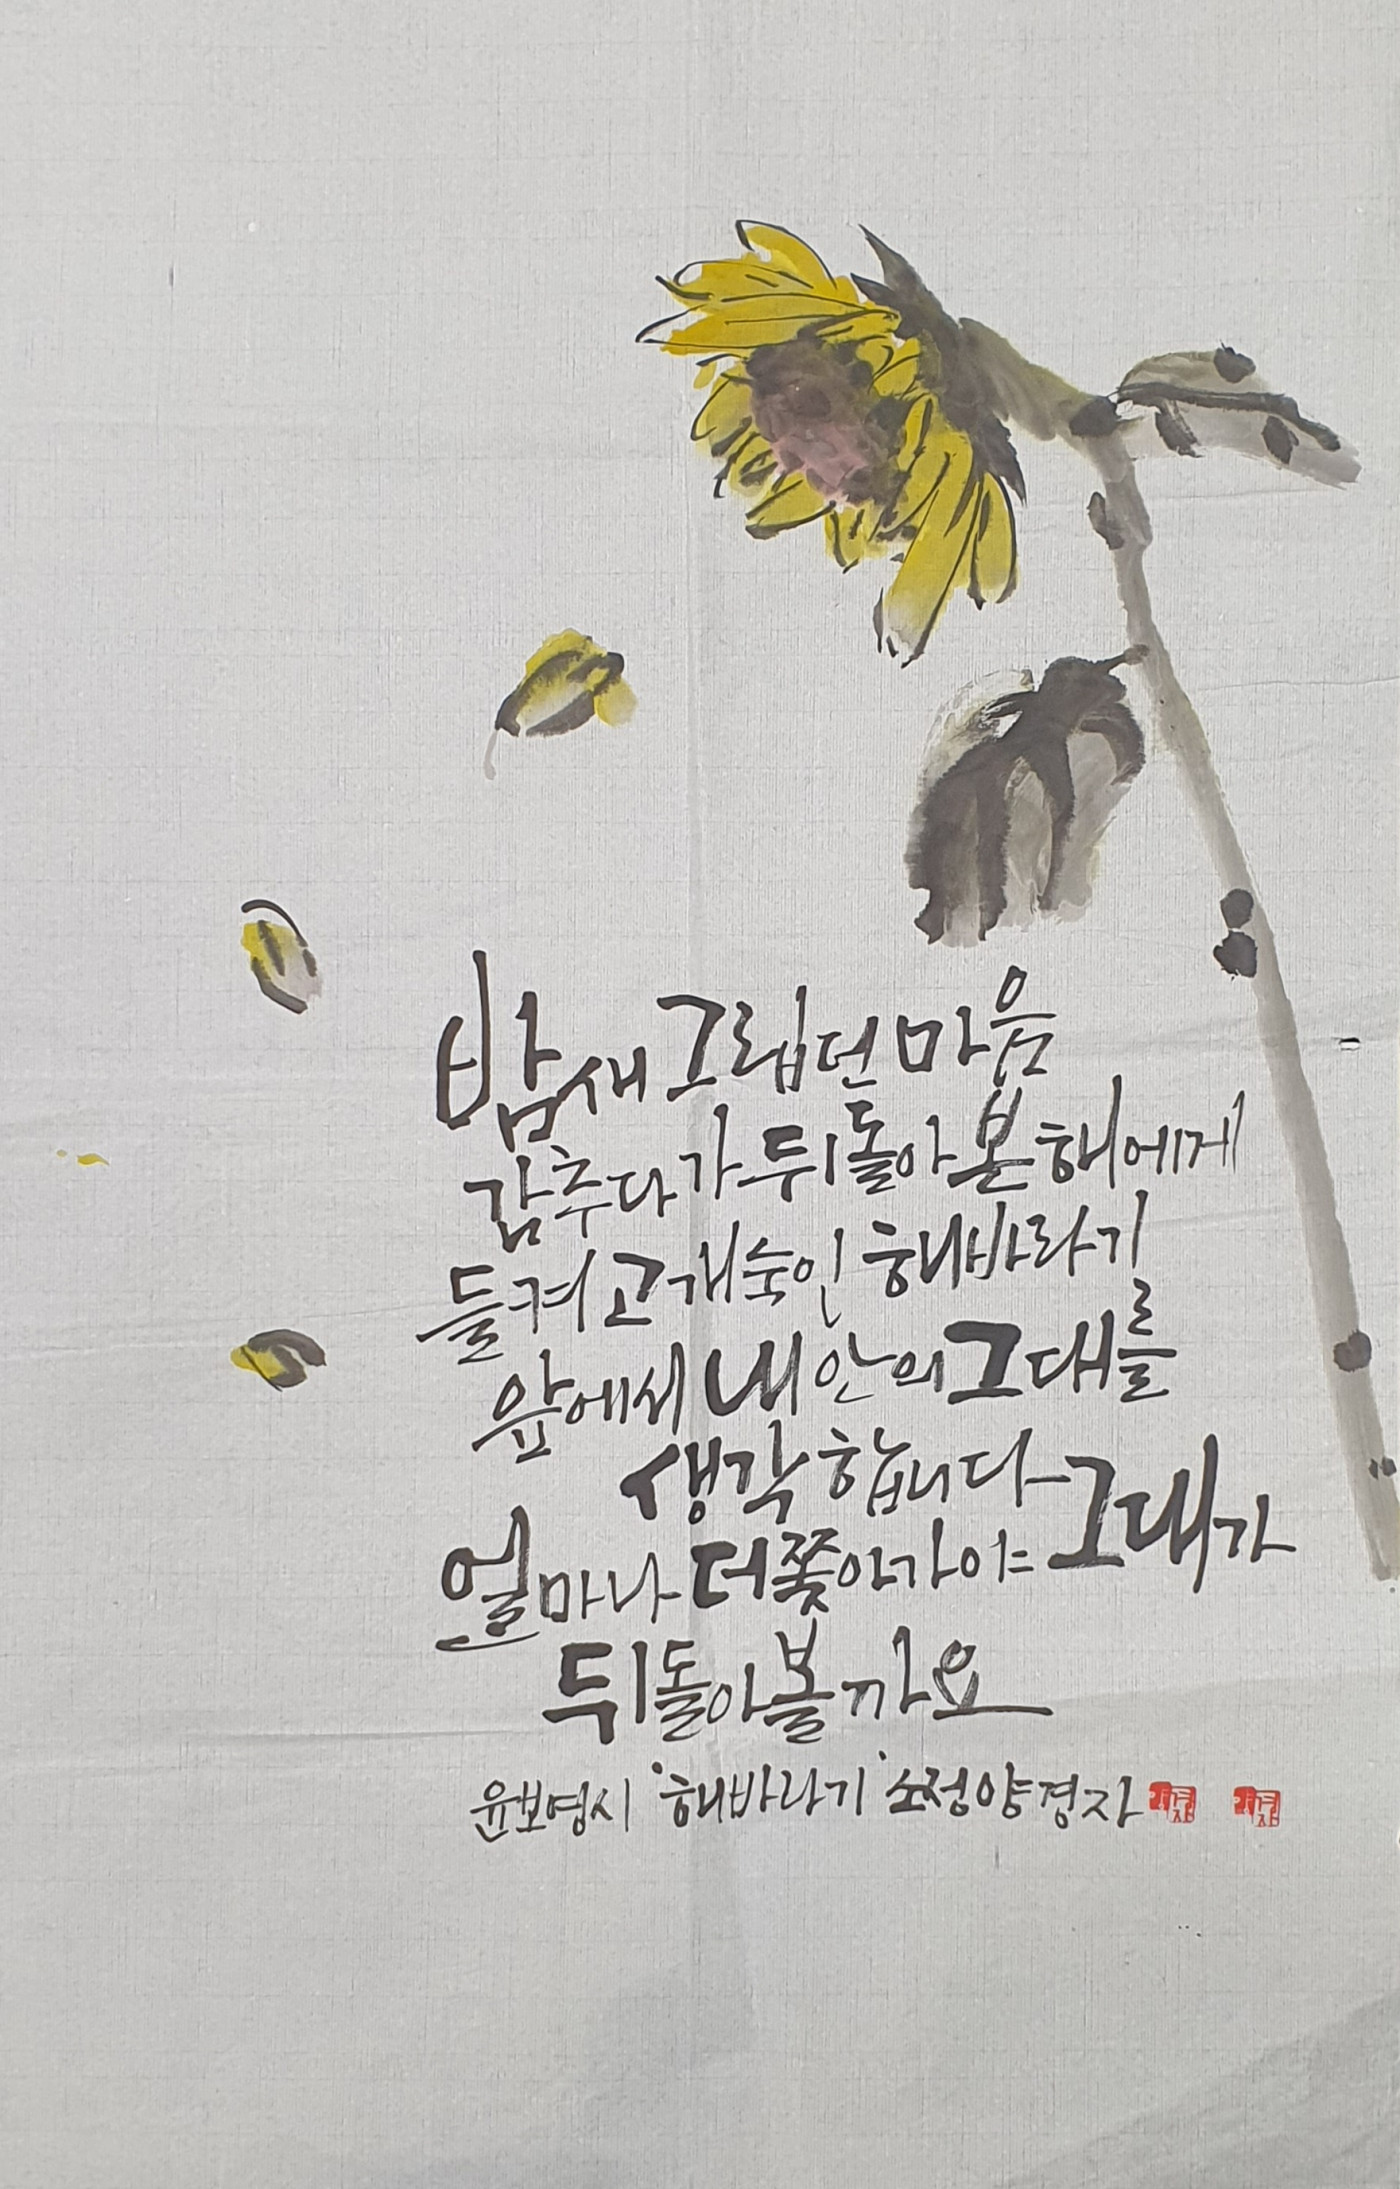 밤새 그립던 마음
감추다가 뒤돌아본 해에게
들켜 고개숙인 해바라기
앞에서 내 안의 그대를
생각합니다
얼마나 더 쫓아가야 그대가
뒤돌아볼까요
윤보영시 '해바라기' 소정양경자